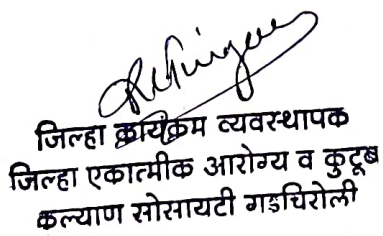 जिल्हा कार्यक्रम व्यवस्थापक
जिल्हा एकात्मीक आरोग्य व कुटूंब
कल्याण सोसायटी गडचिरोली